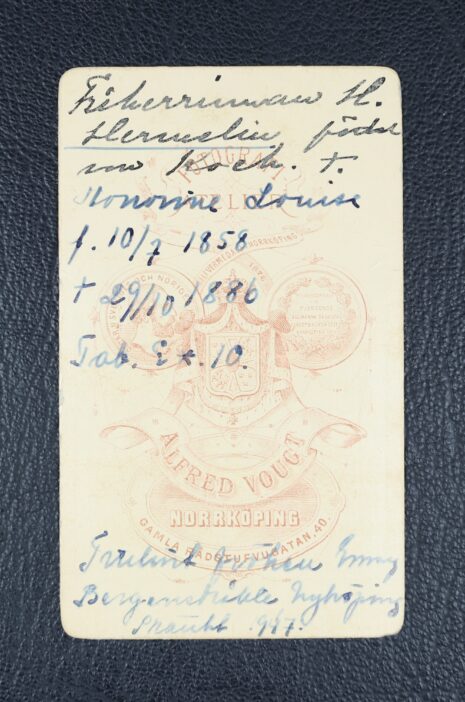 Friherrinnan H.
Hermelin född
von Koch. †.
FOTOGRAFI
ATELIER
Honorine Louise
f. 10/7 1858
NORRKÖPING
† 29/10 1886
Tab. E *. 10.
ALFRED VOUGT
NORRKÖPING
GAMLA RÅDSTUFVUGATAN.40.
fröken Emmy
Bergenstråhle Nyköping